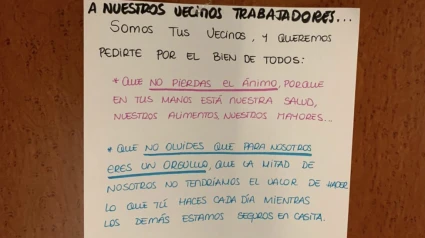 A NUESTROS VECINOS TRABAJADORES...
SOMOS TUS VECINOS, Y QUEREMOS
PEDIRTE POR EL BIEN DE TODOS:
* QUE NO PIERDAS EL ÁNIMO, PORQUE
EN TUS MANOS ESTÁ NUESTRA SALUD,
NUESTROS ALIMENTOS, NUESTROS MAYORES...
* QUE NO OLVIDES QUE PARA NOSOTROS
ERES UN ORGULLO, QUE LA MITAD DE
NOSOTROS NO TENDRÍAMOS EL VALOR DE HACER
LO QUE TÚ HACES CADA DÍA MIENTRAS
LOS DEMÁS ESTAMOS SEGUROS EN CASITA.